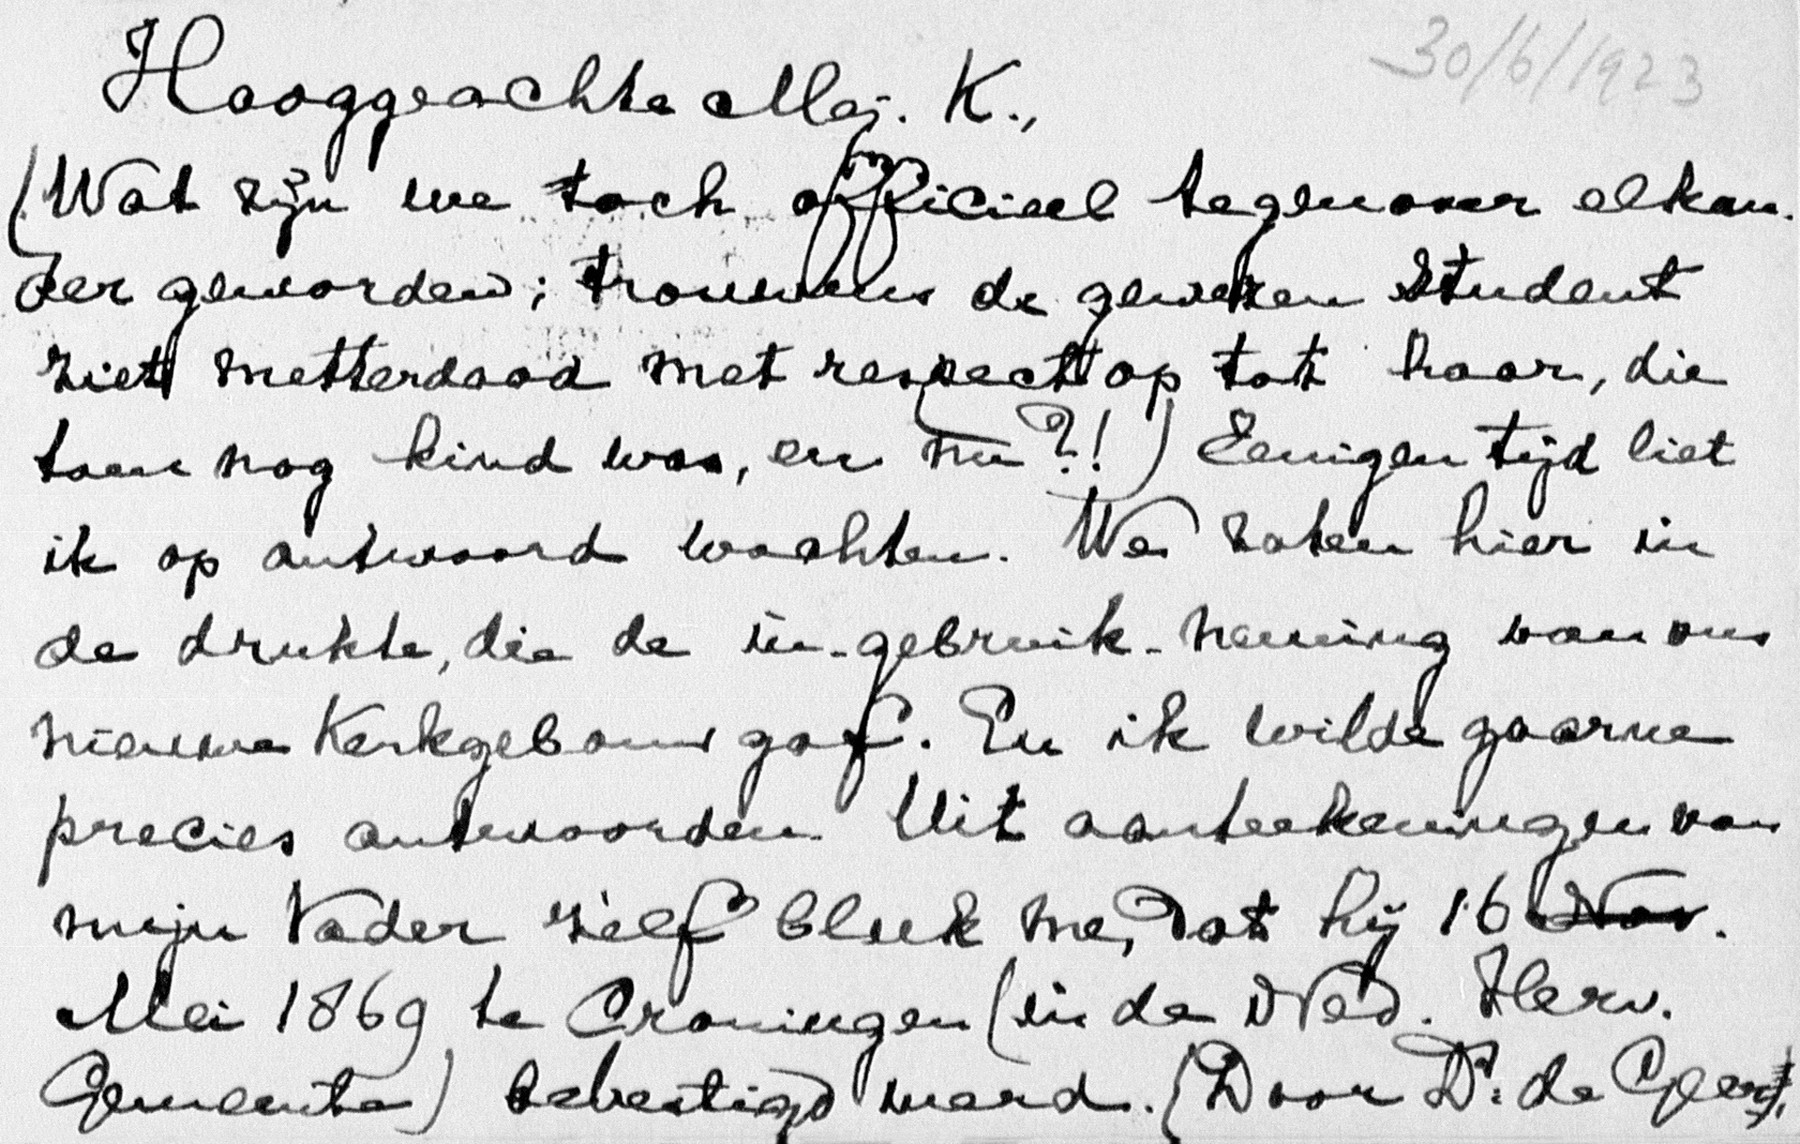 30/6/1923
Hooggeachte Mej. K.,
(Wat zijn we toch officieel tegenover elkan-
der geworden; trouwens de gewezen student
ziet metterdaad met respect op tot haar, die
toen nog kind was, en nu?!) Eenigen tijd liet
ik op antwoord wachten. We zaten hier in
de drukte, die de in-gebruik-neming van ons
nieuwe Kerkgebouw gaf. En ik wilde gaarne
precies antwoorden. Uit aanteekeningen van
mijn Vader zelf bleek me, dat hij 16 Nov.
Mei 1869 te Groningen (in de Ned. Herv.
Gemeente) bevestigd werd. (Door Ds. de Geer